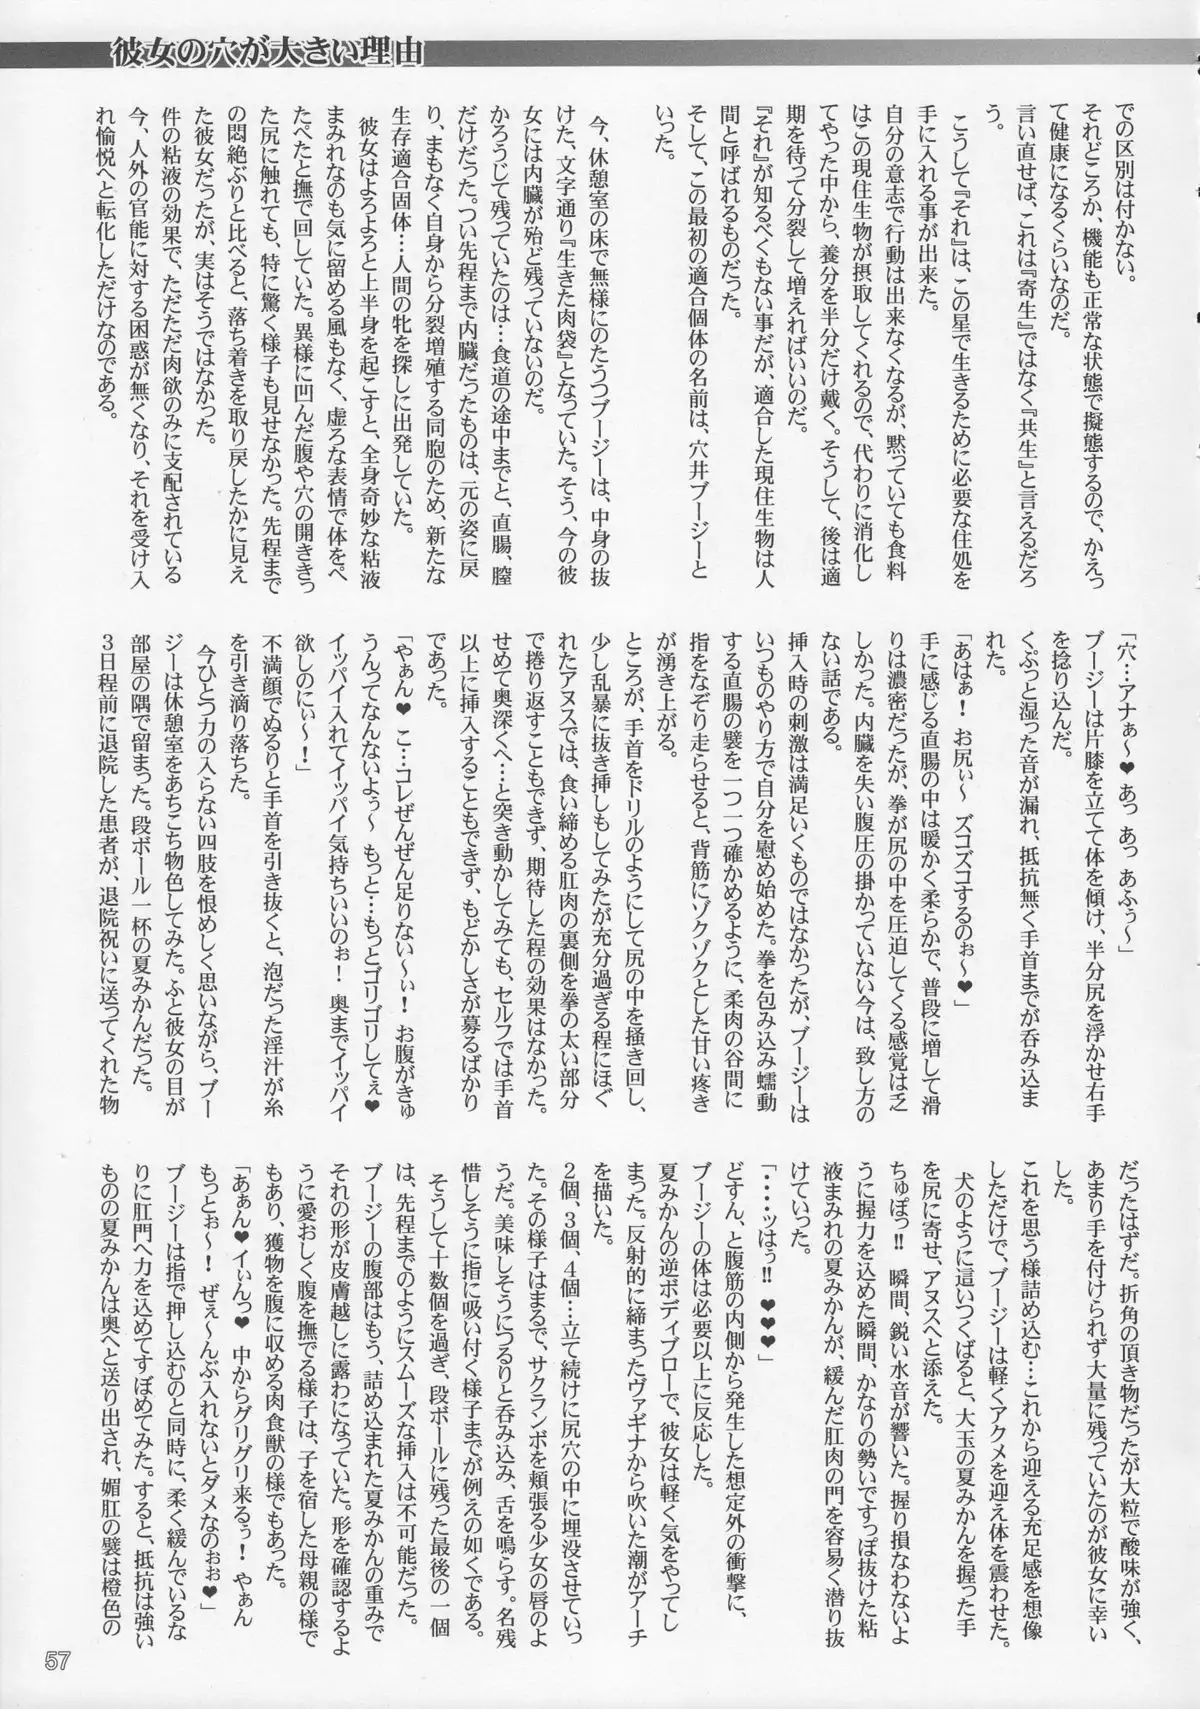 彼女の穴が大きい理由
での区別は付かない。
それどころか、機能も正常な状態で擬態するので、かえっ
て健康になるくらいなのだ。
言い直せば、これは『寄生』ではなく『共生』と言えるだろ
う。
こうして『それ』は、この星で生きるために必要な住処を
手に入れる事が出来た。
自分の意志で行動は出来なくなるが、黙っていても食料
はこの現住生物が摂取してくれるので、代わりに消化し
てやった中から、養分を半分だけ戴く。そうして、後は適
期を待って分裂して増えればいいのだ。
『それ』が知るべくもない事だが、適合した現住生物は人
間と呼ばれるものだった。
そして、この最初の適合個体の名前は、穴井ブージーと
いった。
今、休憩室の床で無様にのたうつブージーは、中身の抜
けた、文字通り『生きた肉袋』となっていた。そう、今の彼
女には内臓が殆ど残っていないのだ。
かろうじて残っていたのは…食道の途中までと、直腸、膣
だけだった。つい先程まで内臓だったものは、元の姿に戻
り、まもなく自身から分裂増殖する同胞のため、新たな
生存適合固体…人間の牝を探しに出発していた。
彼女はよろよろと上半身を起こすと、全身奇妙な粘液
まみれなのも気に留める風もなく、虚ろな表情で体をぺ
たぺたと撫で回していた。異様に凹んだ腹や穴の開ききっ
た尻に触れても、特に驚く様子も見せなかった。先程まで
の悶絶ぶりと比べると、落ち着きを取り戻したかに見え
た彼女だったが、実はそうではなかった。
件の粘液の効果で、ただただ肉欲のみに支配されている
今、人外の官能に対する困惑が無くなり、それを受け入
れ愉悦へと転化しただけなのである。
「穴…アナぁ〜❤あっ あっ あふぅ〜」
ブージーは片膝を立てて体を傾け、半分尻を浮かせ右手
を捻り込んだ。
くぷっと湿った音が漏れ、抵抗無く手首までが呑み込ま
れた。
「あはぁ！ お尻ぃ〜 ズコズコするのぉ〜❤」
手に感じる直腸の中は暖かく柔らかで、普段に増して滑
りは濃密だったが、拳が尻の中を圧迫してくる感覚は乏
しかった。内臓を失い腹圧の掛かっていない今は、致し方の
ない話である。
挿入時の刺激は満足いくものではなかったが、ブージーは
いつものやり方で自分を慰め始めた。拳を包み込み蠕動
する直腸の襞を一つ一つ確かめるように、柔肉の谷間に
指をなぞり走らせると、背筋にゾクゾクとした甘い疼き
が湧き上がる。
ところが、手首をドリルのようにして尻の中を掻き回し、
少し乱暴に抜き挿しもしてみたが充分過ぎる程にほぐ
れたアヌスでは、食い締める肛肉の裏側を拳の太い部分
で捲り返すこともできず、期待した程の効果はなかった。
せめて奥深くへ…と突き動かしてみても、セルフでは手首
以上に挿入することもできず、もどかしさが募るばかり
であった。
「やぁん❤ こ…コレぜんぜん足りない〜ぃ！ お腹がきゅ
うんってなんないよぅ〜 もっと…もっとゴリゴリしてぇ❤
イッパイ入れてイッパイ気持ちいいのぉ！ 奥までイッパイ
欲しのにぃ〜！」
不満顔でぬるりと手首を引き抜くと、泡だった淫汁が糸
を引き滴り落ちた。
今ひとつ力の入らない四肢を恨めしく思いながら、ブー
ジーは休憩室をあちこち物色してみた。ふと彼女の目が
部屋の隅で留まった。段ボール一杯の夏みかんだった。
３日程前に退院した患者が、退院祝いに送ってくれた物
だったはずだ。折角の頂き物だったが大粒で酸味が強く、
あまり手を付けられず大量に残っていたのが彼女に幸い
した。
これを思う様詰め込む…これから迎える充足感を想像
しただけで、ブージーは軽くアクメを迎え体を震わせた。
犬のように這いつくばると、大玉の夏みかんを握った手
を尻に寄せ、アヌスへと添えた。
ちゅぽっ!! 瞬間、鋭い水音が響いた。握り損なわないよ
うに握力を込めた瞬間、かなりの勢いですっぽ抜けた粘
液まみれの夏みかんが、緩んだ肛肉の門を容易く潜り抜
けていった。
「・・・・ッはぅ!! ❤❤❤」
どすん、と腹筋の内側から発生した想定外の衝撃に、
ブージーの体は必要以上に反応した。
夏みかんの逆ボディブローで、彼女は軽く気をやってし
まった。反射的に締まったヴァギナから吹いた潮がアーチ
を描いた。
２個、３個、４個…立て続けに尻穴の中に埋没させていっ
た。その様子はまるで、サクランボを頬張る少女の唇のよ
うだ。美味しそうにつるりと呑み込み、舌を鳴らす。名残
惜しそうに指に吸い付く様子までが例えの如くである。
そうして十数個を過ぎ、段ボールに残った最後の一個
は、先程までのようにスムーズな挿入は不可能だった。
ブージーの腹部はもう、詰め込まれた夏みかんの重みで
それの形が皮膚越しに露わになっていた。形を確認するよ
うに愛おしく腹を撫でる様子は、子を宿した母親の様で
もあり、獲物を腹に収める肉食獣の様でもあった。
「あぁん❤イぃんっ❤ 中からグリグリ来るぅ！ やぁん
もっとぉ〜！ ぜぇ〜んぶ入れないとダメなのぉぉ❤」
ブージーは指で押し込むのと同時に、柔く緩んでいるな
りに肛門へ力を込めてすぼめてみた。すると、抵抗は強い
ものの夏みかんは奥へと送り出され、媚肛の襞は橙色の
57